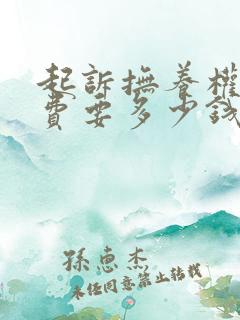 起訴撫養權
費要多少錢
孫惠杰
未经同意禁止转载